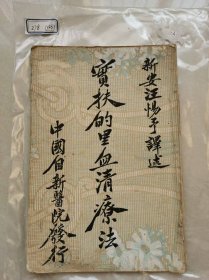 新安汪惕予譯述
實扶的里血清療法
中國自新醫院發行